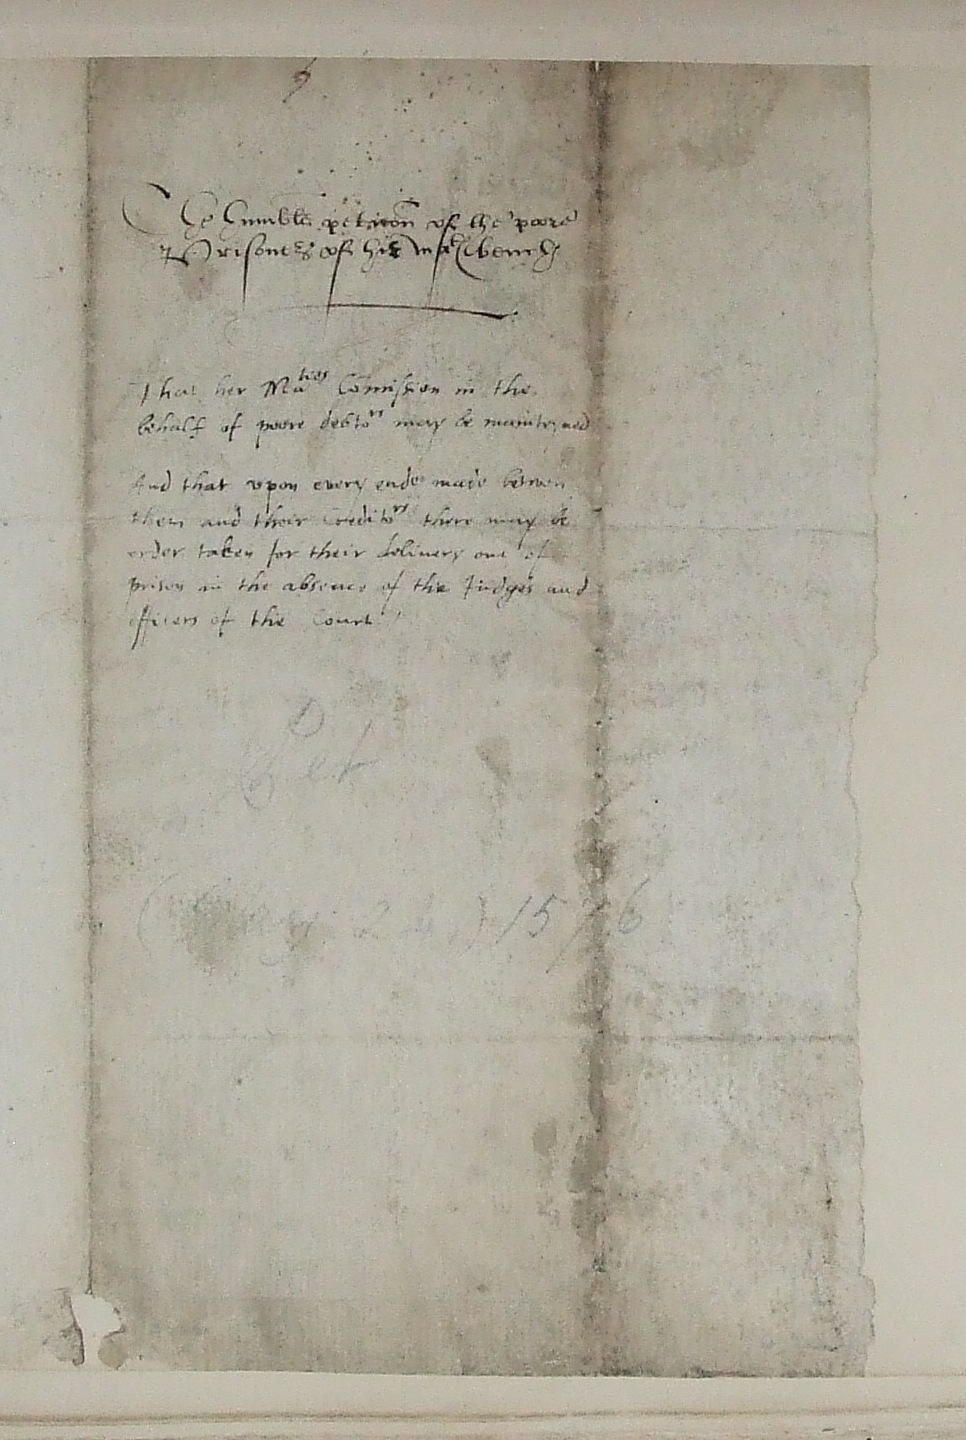 The humble petic̄on of the poore
Prisoners of hir Mats bench
That her Maties Com̄ission in the
behalf of poore debtors may be maintayned
And that upon every ende made betwen
them and their Creditors there may be
order taken for their delivery out of
prison in the absence of the Judges and
officers of the Court
Pet
1576